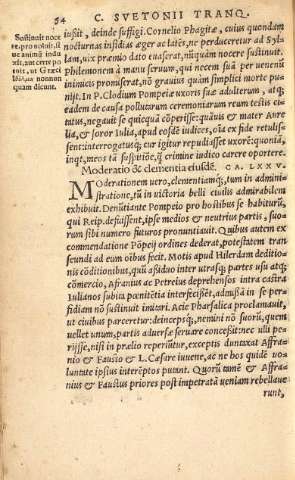 54 C. SVETONII TRANQ.
Sustinuit noce
re, pro noluit. si
ue animū indu
xit, aut cœre po-
tuit, ut Græci
nonnun
quam dicunt.
iussit, deinde suffigi. Cornelio Phagitæ, cuius quondam
nocturnas insidias æger ac latēs, ne perduceretur ad Syl-
lam, uix præmio dato euaserat, nūquàm nocere sustinuit.
Philemonem à manu seruum, qui necem suā per uenenū
inimicis promiserat, nō grauius quàm simplici morte pu-
nijt. In P. Clodium Pompeiæ uxoris suæ adulterum, atq;
eadem de causa pollutarum ceremoniarum reum testis ci-
tatus, negauit se quicquā cōperisse: quāuis & mater Aure
lia, & soror Iulia, apud eosdē iudices, oīa ex fide retulis-
sent: interrogatusq; cur igitur repudiasset uxorē: quoniā,
inqt, meos tā suspitiōe, q̄ crimine iudico carere oportere.
Moderatio & clementia eiusdē. CA. LXXV.
MOderationem uero, clementiamq;, tum in admini-
stratione, tū in uictoria belli ciuilis admirabilem
exhibuit. Denūtiante Pompeio pro hostibus se habiturū,
qui Reip. defuissent, ipse medios & neutrius partis, suo-
rum sibi numero futuros pronuntiauit. Quibus autem ex
commendatione Pōpeij ordines dederat, potestatem tran
seundi ad eum oībus fecit. Motis apud Hilerdam deditio-
nis cōditionibus, quū assiduo inter utrasq; partes usu atq;
cōmercio, Afranius ac Petreius deprehensos intra castra
Iulianos subita pœnitētia interfecissēt, admissā in se per-
fidiam nō sustinuit imitari. Acie Pharsalica proclamauit,
ut ciuibus parceretur: deincepsq;, nemini nō suorū, quem
uellet unum, partis aduersæ seruare concessit: nec ulli pe-
rijsse, nisi in prælio reperiūtur, exceptis duntaxat Affra-
nio & Fausto & L. Cæsare iuuene, ac ne hos quidē uo-
luntate ipsius interēptos putant. Quorū tamē & Affra-
nius & Faustus priores post impetratā ueniam rebellaue
runt,